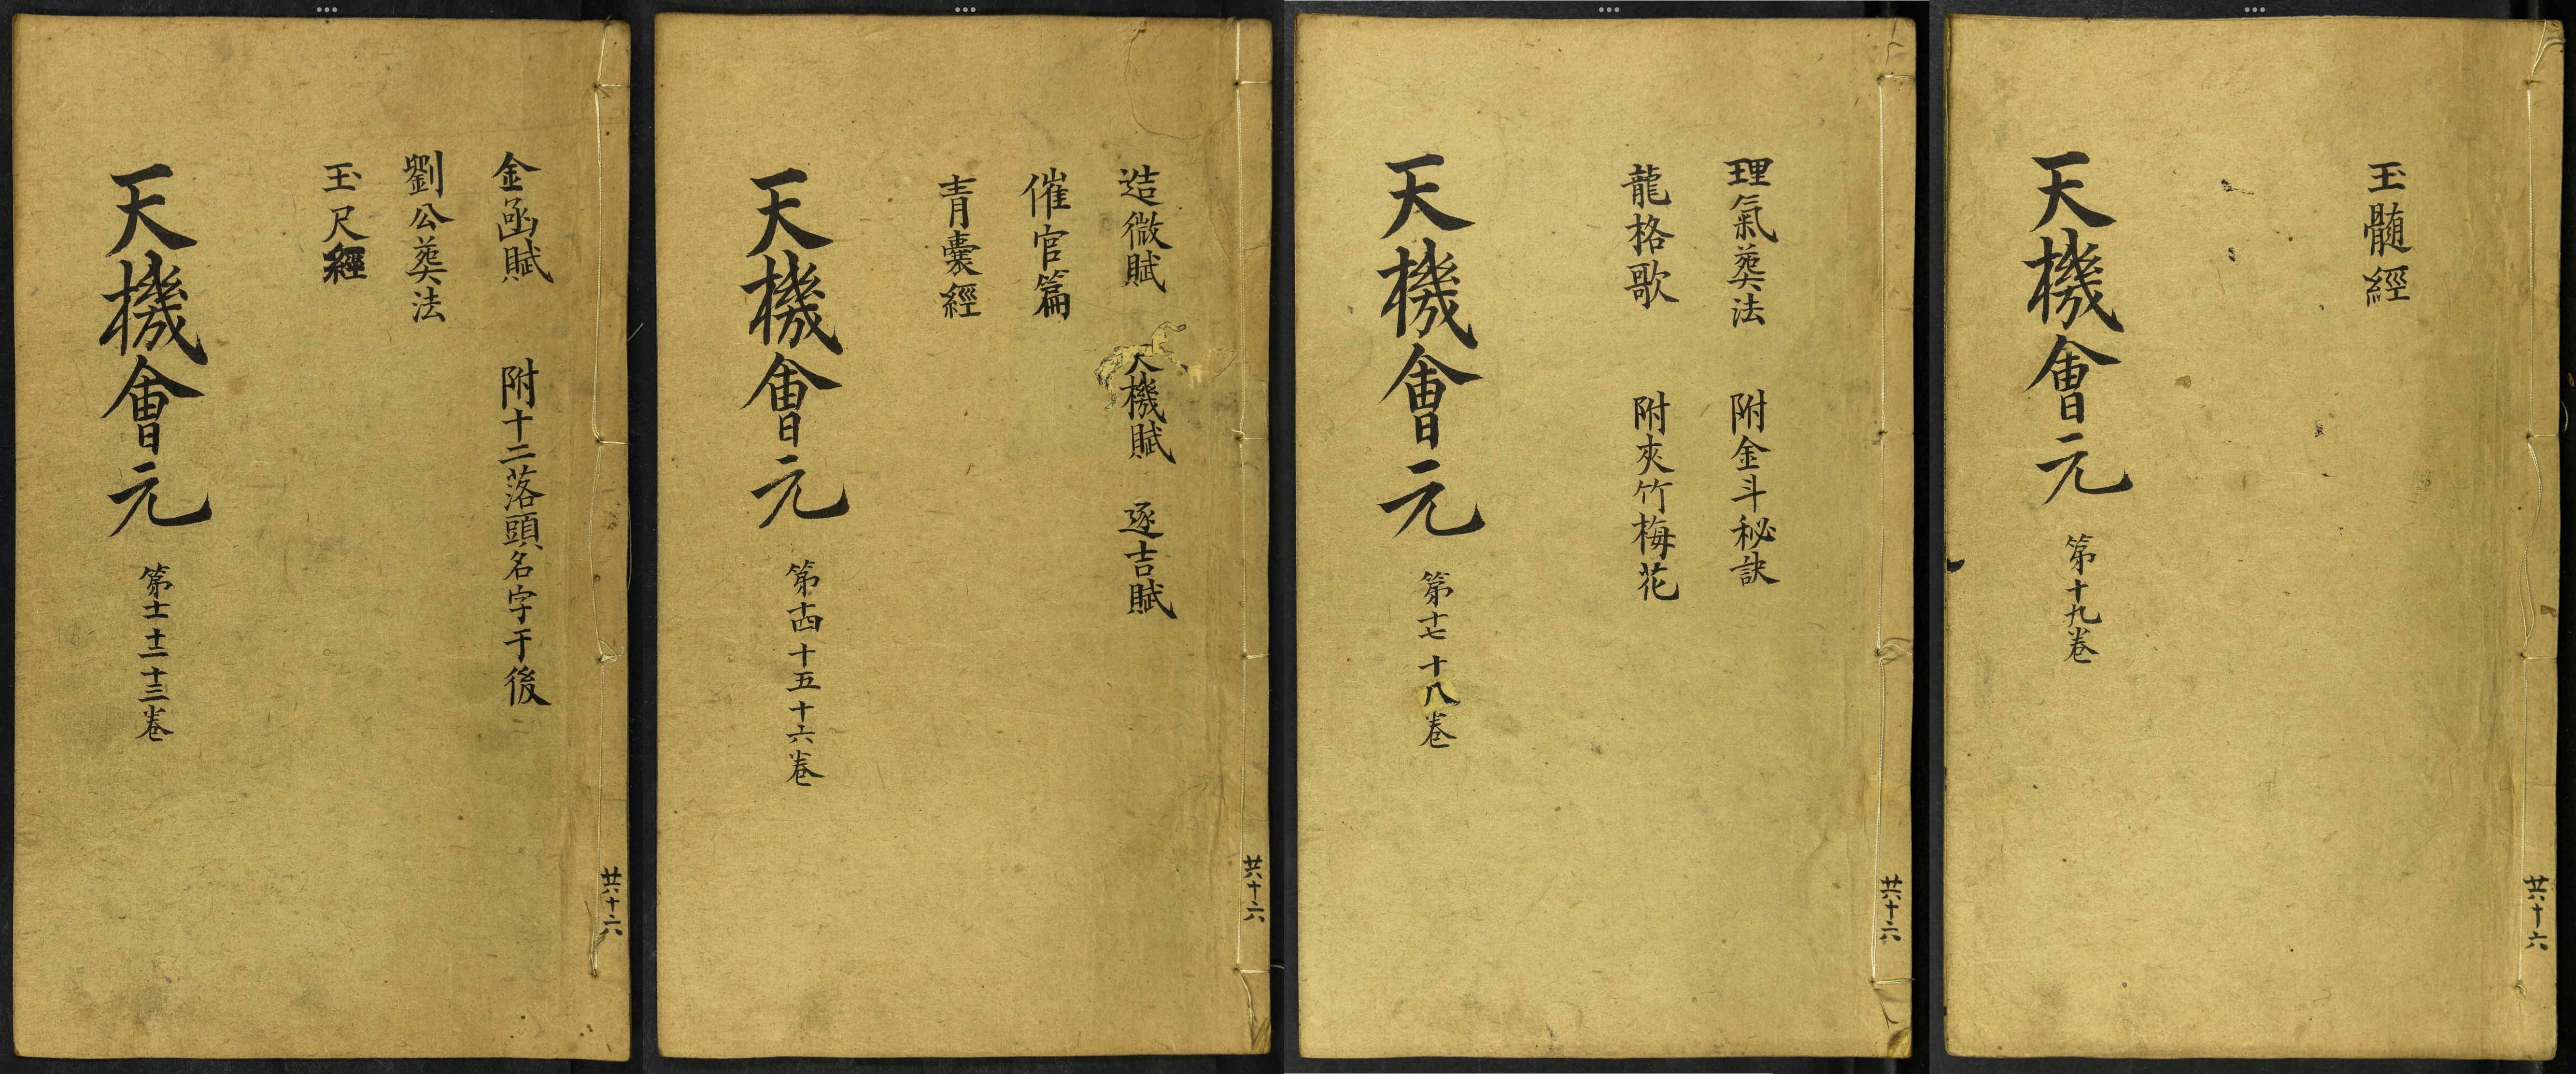 共十六
金凾賦 附十二落頭名字于後
劉公葬法
玉尺經
天機會元 第十一 十二 十三卷
共十六
造微賦 天機賦 逐吉賦
催官篇
青囊經
天機會元 第十四 十五 十六卷
共十六
理氣葬法 附金斗秘訣
龍格歌 附夾竹梅花
天機會元 第十七 十八卷
共十六
玉髄經
天機會元 第十九卷